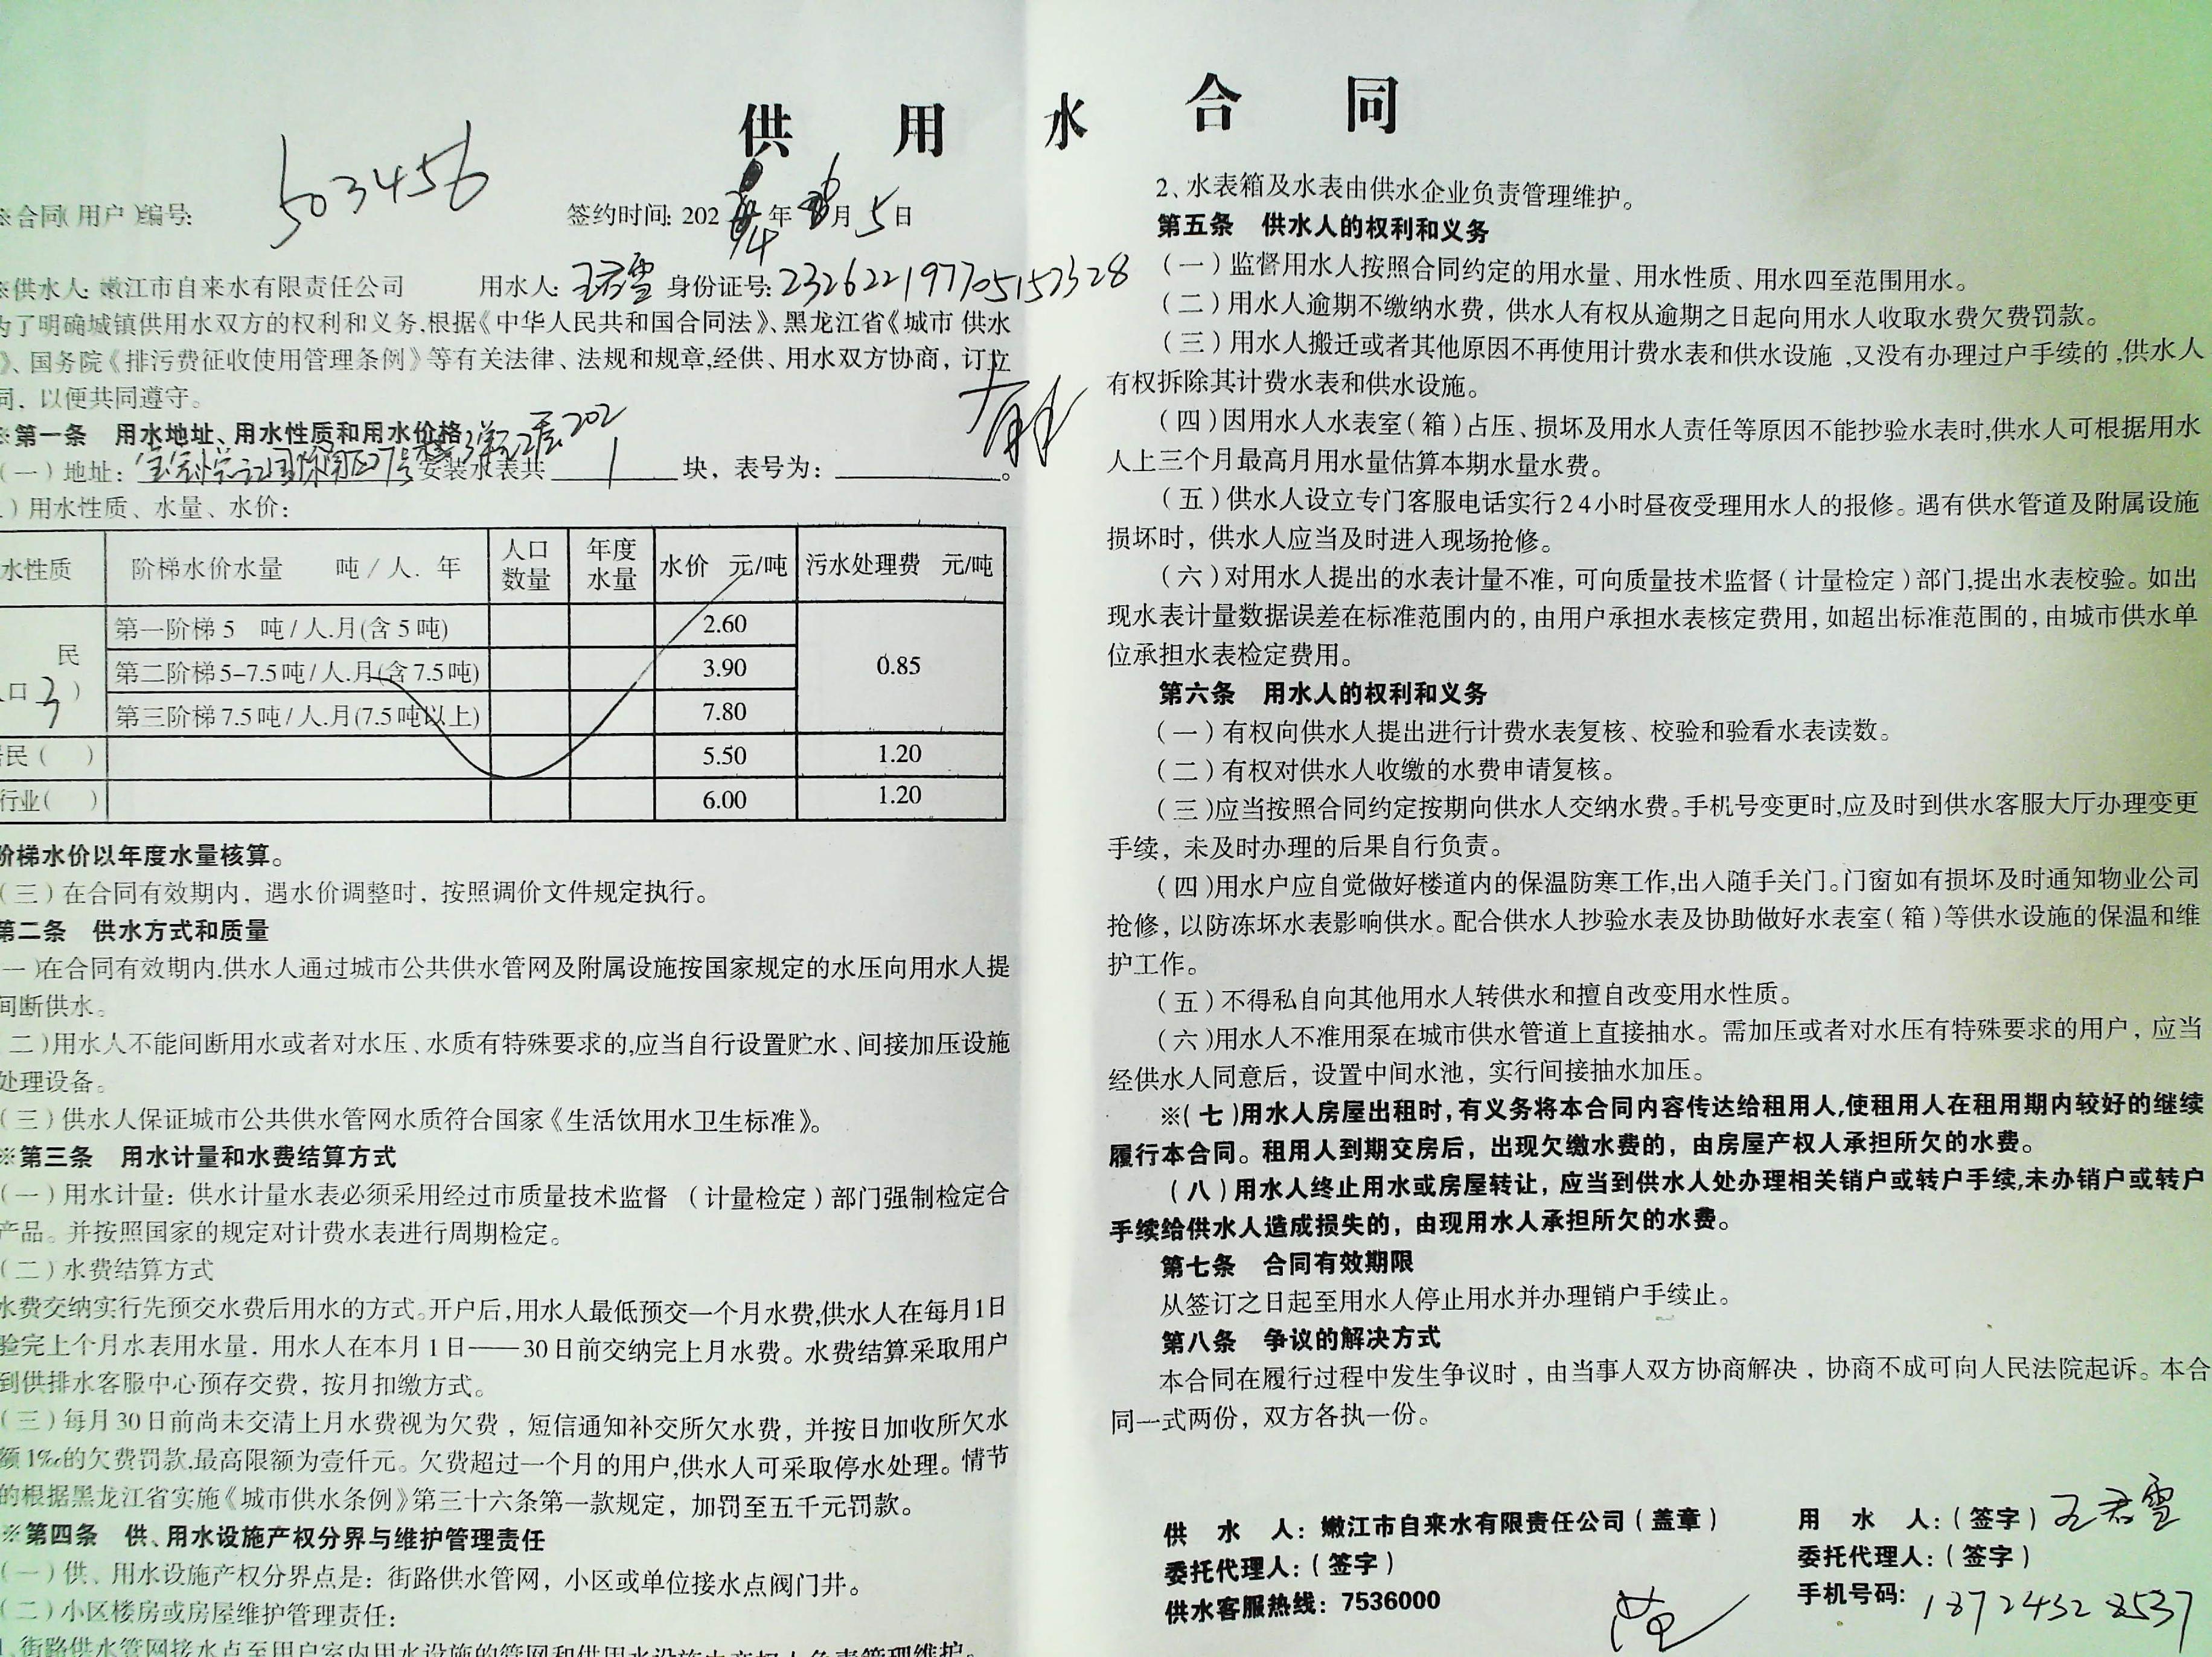 供用水合同
※合同(用户)编号: 503456
签约时间: 202 4年 月5日
※供水人: 嫩江市自来水有限责任公司 用水人: 王君雪 身份证号: 232622197705152328
为了明确城镇供用水双方的权利和义务,根据《中华人民共和国合同法》、黑龙江省《城市 供水
》、国务院《排污费征收使用管理条例》等有关法律、法规和规章,经供、用水双方协商，订立
同，以便共同遵守。
※第一条 用水地址、用水性质和用水价格
(一)地址: 国际 区27号楼3单元2层202 安装水表共 1 块，表号为: 。
)用水性质、水量、水价:
水性质 阶梯水价水量 吨/人.年 人口数量 年度水量 水价 元/吨 污水处理费 元/吨
民 口3) 第一阶梯 5 吨/人.月(含 5 吨) 2.60 0.85
第二阶梯 5-7.5 吨/人.月(含 7.5 吨) 3.90
第三阶梯 7.5 吨/人.月(7.5 吨以上) 7.80
居民( ) 5.50 1.20
行业( ) 6.00 1.20
阶梯水价以年度水量核算。
(三)在合同有效期内，遇水价调整时，按照调价文件规定执行。
第二条 供水方式和质量
一)在合同有效期内,供水人通过城市公共供水管网及附属设施按国家规定的水压向用水人提
间断供水。
二)用水人不能间断用水或者对水压、水质有特殊要求的,应当自行设置贮水、间接加压设施
处理设备。
(三)供水人保证城市公共供水管网水质符合国家《生活饮用水卫生标准》。
※第三条 用水计量和水费结算方式
(一)用水计量：供水计量水表必须采用经过市质量技术监督 (计量检定)部门强制检定合
产品。并按照国家的规定对计费水表进行周期检定。
(二)水费结算方式
水费交纳实行先预交水费后用水的方式。开户后,用水人最低预交一个月水费,供水人在每月1日
验完上个月水表用水量．用水人在本月 1 日——30 日前交纳完上月水费。水费结算采取用户
到供排水客服中心预存交费，按月扣缴方式。
(三)每月 30 日前尚未交清上月水费视为欠费，短信通知补交所欠水费，并按日加收所欠水
额 1‰的欠费罚款,最高限额为壹仟元。欠费超过一个月的用户,供水人可采取停水处理。情节
的根据黑龙江省实施《城市供水条例》第三十六条第一款规定，加罚至五千元罚款。
※第四条 供、用水设施产权分界与维护管理责任
(一)供、用水设施产权分界点是：街路供水管网，小区或单位接水点阀门井。
(二)小区楼房或房屋维护管理责任:
、街路供水管网接水点至用户室内用水设施的管网和供用水设施由产权人负责管理维护。
2、水表箱及水表由供水企业负责管理维护。
第五条 供水人的权利和义务
(一)监督用水人按照合同约定的用水量、用水性质、用水四至范围用水。
(二)用水人逾期不缴纳水费，供水人有权从逾期之日起向用水人收取水费欠费罚款。
(三)用水人搬迁或者其他原因不再使用计费水表和供水设施,又没有办理过户手续的,供水人
有权拆除其计费水表和供水设施。
(四)因用水人水表室(箱)占压、损坏及用水人责任等原因不能抄验水表时,供水人可根据用水
人上三个月最高月用水量估算本期水量水费。
(五)供水人设立专门客服电话实行24小时昼夜受理用水人的报修。遇有供水管道及附属设施
损坏时，供水人应当及时进入现场抢修。
(六)对用水人提出的水表计量不准，可向质量技术监督(计量检定)部门,提出水表校验。如出
现水表计量数据误差在标准范围内的,由用户承担水表核定费用,如超出标准范围的,由城市供水单
位承担水表检定费用。
第六条 用水人的权利和义务
(一)有权向供水人提出进行计费水表复核、校验和验看水表读数。
(二)有权对供水人收缴的水费申请复核。
(三)应当按照合同约定按期向供水人交纳水费。手机号变更时,应及时到供水客服大厅办理变更
手续，未及时办理的后果自行负责。
(四)用水户应自觉做好楼道内的保温防寒工作,出入随手关门。门窗如有损坏及时通知物业公司
抢修，以防冻坏水表影响供水。配合供水人抄验水表及协助做好水表室(箱)等供水设施的保温和维
护工作。
(五)不得私自向其他用水人转供水和擅自改变用水性质。
(六)用水人不准用泵在城市供水管道上直接抽水。需加压或者对水压有特殊要求的用户，应当
经供水人同意后，设置中间水池，实行间接抽水加压。
※(七)用水人房屋出租时,有义务将本合同内容传达给租用人,使租用人在租用期内较好的继续
履行本合同。租用人到期交房后，出现欠缴水费的，由房屋产权人承担所欠的水费。
(八)用水人终止用水或房屋转让，应当到供水人处办理相关销户或转户手续,未办销户或转户
手续给供水人造成损失的，由现用水人承担所欠的水费。
第七条 合同有效期限
从签订之日起至用水人停止用水并办理销户手续止。
第八条 争议的解决方式
本合同在履行过程中发生争议时，由当事人双方协商解决，协商不成可向人民法院起诉。本合
同一式两份，双方各执一份。
供 水 人：嫩江市自来水有限责任公司(盖章)
委托代理人：(签字)
供水客服热线：7536000
用 水 人：(签字) 王君雪
委托代理人：(签字)
手机号码: 18724328537